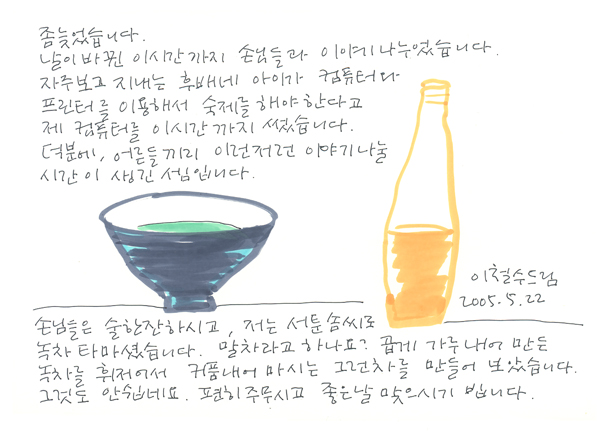 좀 늦었습니다.
날이 바뀐 이시간까지 손님들과 이야기 나누었습니다.
자주보고 지내는 후배네 아이가 컴퓨터와
프린터를 이용해서 숙제를 해야 한다고
제 컴퓨터를 이시간까지 썼습니다.
덕분에, 어른들끼리 이런저런 이야기 나눌
시간이 생긴 셈입니다.
이철수드림
2005.5.22
손님들은 술한잔하시고, 저는 서툰솜씨로
녹차 타마셨습니다. 말차라고 하나요? 곱게 가루내어 만든
녹차를 휘저어서 거품내어 마시는 그런차를 만들어 보았습니다.
그것도 안쉽네요. 편히주무시고 좋은날 맞으시기 빕니다.